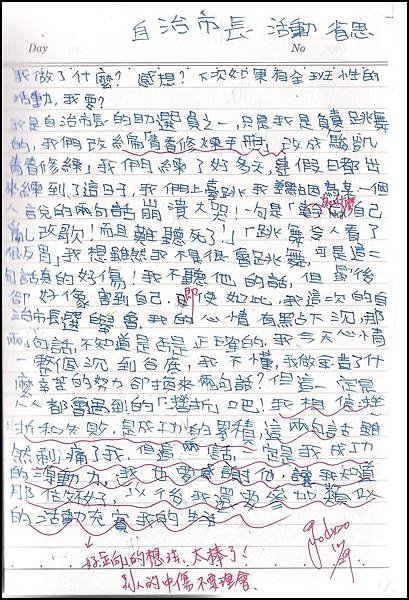 自治市長 活動 省思
Day No
我做了什麼？感想？下次如果有全班性的
活動，我要？
我是自治市長的助選員之一，只是我是負責跳舞
的，我們改編「青春修煉手冊」，改成「颱風
青春修練」我們練了好多天，連假日都出
來練到了這日子，我們上臺跳我難因為某一個
人說的兩句話崩潰大哭！一句是「為什麼自己
亂改歌！而且難聽死了！」「跳舞令人看了
很反胃」我想雖然我不是很會跳舞，可是這二
句話真的好傷！我不聽他的話，但最後
卻好像害到自己，即使如此，我這一次的自
治市長選舉會，我的心情有點下沉，那
兩句話，不知道是否是正確的，我今天心情
一整個沉到谷底，我不懂，我做錯了什
麼辛苦的努力卻換來兩句話？但這一定是
人人都會遇到的「挫折」吧！我想信挫
折和失敗是成功的累積，這兩句話雖
然刺痛了我，但這兩句話一定是我成功
的源動力，我也要感謝他，讓我知道
那個不好，以後我還要參加類似
的活動充實我的生活
好正向的想法，太棒了！
別人的中傷不要理會。